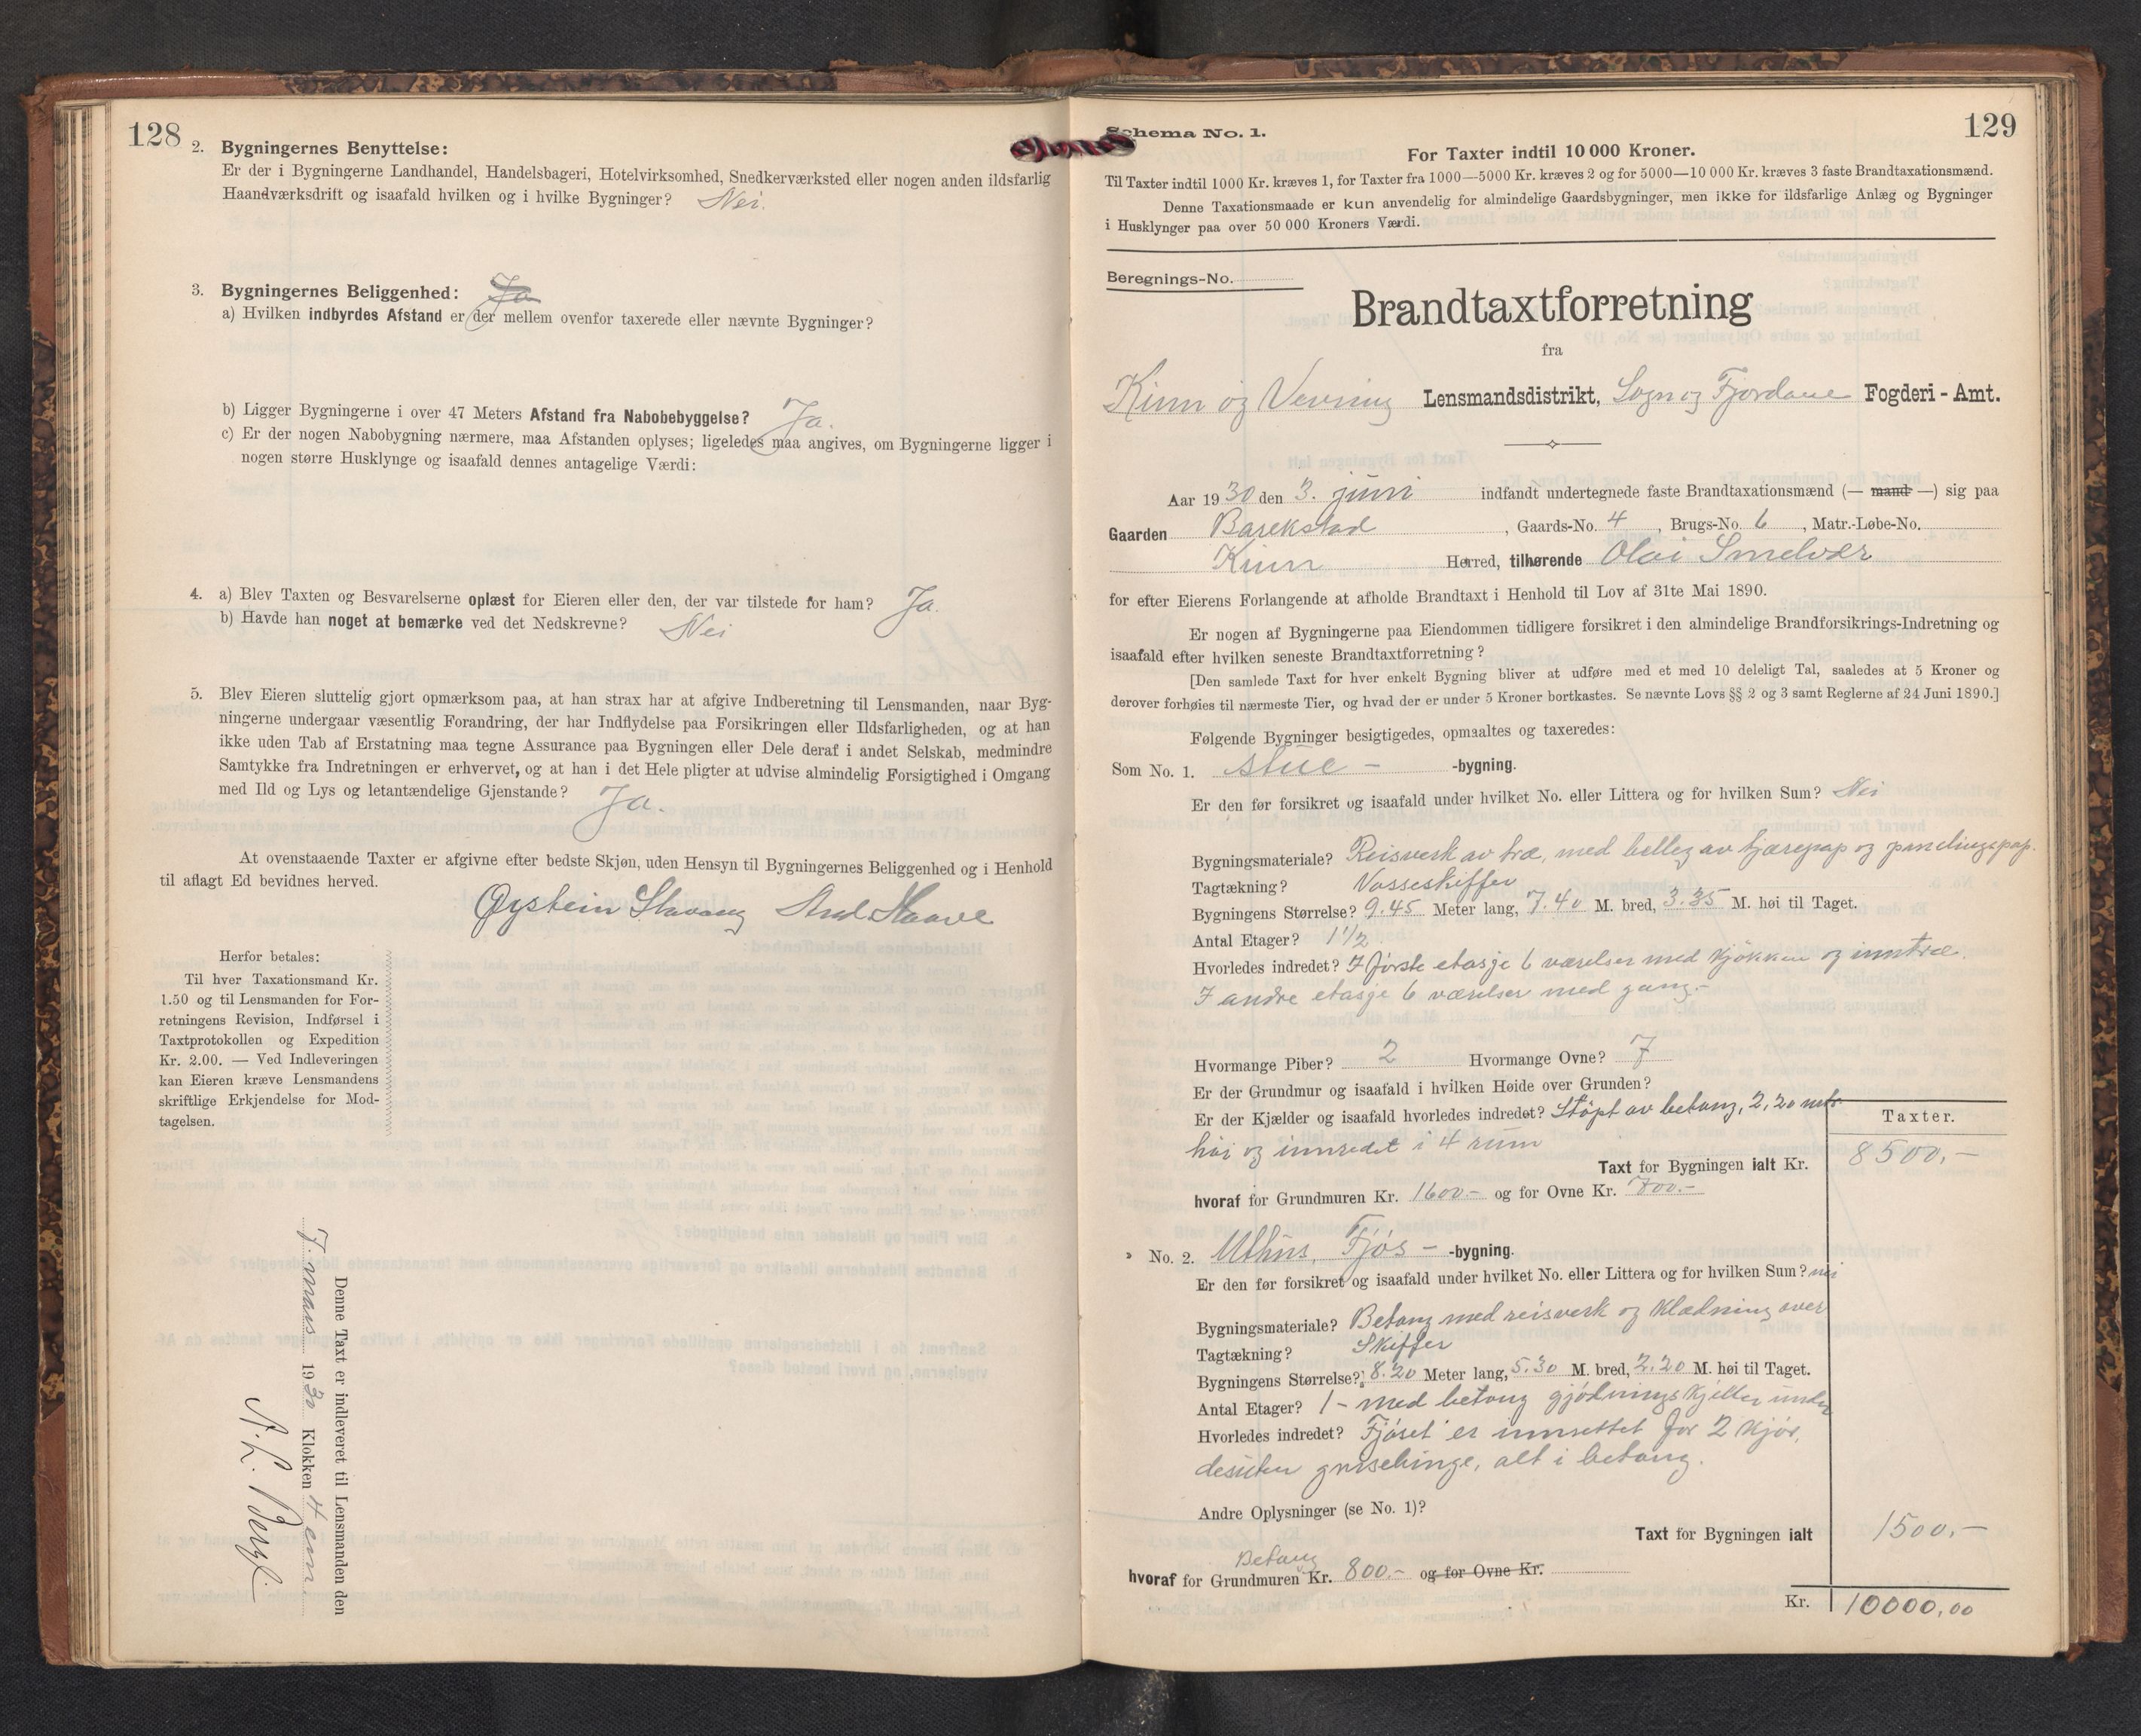 128
2. Bygningernes Benyttelse:
Er der i Bygningerne Landhandel, Handelsbageri, Hotelvirksomhed, Snedkerværksted eller nogen anden ildsfarlig
Haandværksdrift og isaafald hvilken og i hvilke Bygninger? Nei.
3. Bygningernes Beliggenhed: Ja
a) Hvilken indbyrdes Afstand er der mellem ovenfor taxerede eller nævnte Bygninger?
b) Ligger Bygningerne i over 47 Meters Afstand fra Nabobebyggelse? Ja.
c) Er der nogen Nabobygning nærmere, maa Afstanden oplyses; ligeledes maa angives, om Bygningerne ligger i
nogen større Husklynge og isaafald dennes antagelige Værdi:
4. a) Blev Taxten og Besvarelserne oplæst for Eieren eller den, der var tilstede for ham? Ja.
b) Havde han noget at bemærke ved det Nedskrevne? Nei
5. Blev Eieren sluttelig gjort opmærksom paa, at han strax har at afgive Indberetning til Lensmanden, naar Byg-
ningerne undergaar væsentlig Forandring, der har Indflydelse paa Forsikringen eller Ildsfarligheden, og at han
ikke uden Tab af Erstatning maa tegne Assurance paa Bygningen eller Dele deraf i andet Selskab, medmindre
Samtykke fra Indretningen er erhvervet, og at han i det Hele pligter at udvise almindelig Forsigtighed i Omgang
med Ild og Lys og letantændelige Gjenstande? Ja.
At ovenstaaende Taxter er afgivne efter bedste Skjøn, uden Hensyn til Bygningernes Beliggenhed og i Henhold
til aflagt Ed bevidnes herved.
Øystein Stavang And. Haave
Herfor betales:
Til hver Taxationsmand Kr.
1.50 og til Lensmanden for For-
retningens Revision, Indførsel i
Taxtprotokollen og Expedition
Kr. 2.00. — Ved Indleveringen
kan Eieren kræve Lensmandens
skriftlige Erkjendelse for Mod-
tagelsen.
Denne Taxt er indleveret til Lensmanden den
7. mars 1930 Klokken 4 em.
A. L. Berge.
129
Schema No. 1.
For Taxter indtil 10 000 Kroner.
Til Taxter indtil 1000 Kr. kræves 1, for Taxter fra 1000—5000 Kr. kræves 2 og for 5000—10 000 Kr. kræves 3 faste Brandtaxationsmænd.
Denne Taxationsmaade er kun anvendelig for almindelige Gaardsbygninger, men ikke for ildsfarlige Anlæg og Bygninger
i Husklynger paa over 50 000 Kroners Værdi.
Beregnings-No.
Brandtaxtforretning
fra
Kinn og Vevring Lensmandsdistrikt, Sogn og Fjordane Fogderi - Amt.
Aar 1930 den 3. juni indfandt undertegnede faste Brandtaxationsmænd (— mand —) sig paa
Gaarden Barekstad, Gaards-No. 4, Brugs-No. 6, Matr.-Løbe-No.
Kinn Herred, tilhørende Olai Smelvær
for efter Eierens Forlangende at afholde Brandtaxt i Henhold til Lov af 31te Mai 1890.
Er nogen af Bygningerne paa Eiendommen tidligere forsikret i den almindelige Brandforsikrings-Indretning og
isaafald efter hvilken seneste Brandtaxtforretning?
[Den samlede Taxt for hver enkelt Bygning bliver at udføre med et med 10 deleligt Tal, saaledes at 5 Kroner og
derover forhøies til nærmeste Tier, og hvad der er under 5 Kroner bortkastes. Se nævnte Lovs §§ 2 og 3 samt Reglerne af 24 Juni 1890.]
Følgende Bygninger besigtigedes, opmaaltes og taxeredes:
Som No. 1. stue - -bygning.
Er den før forsikret og isaafald under hvilket No. eller Littera og for hvilken Sum? Nei
Bygningsmateriale? Reisverk av træ, med belleg av tjærepap og panelingspap.
Tagtækning? Vosseskiffer
Bygningens Størrelse? 9.45 Meter lang, 7.40 M. bred, 3.35 M. høi til Taget.
Antal Etager? 1 1/2
Hvorledes indredet? I første etasje 6 værelser med kjøkken og inntræ.
I andre etasje 6 værelser med gang.-
Hvormange Piber? 2 Hvormange Ovne? 7
Er der Grundmur og isaafald i hvilken Høide over Grunden?
Er der Kjælder og isaafald hvorledes indredet? Støpt av betong, 2,20 metr
høi og innredet i 4 rum
Taxter.
Taxt for Bygningen ialt Kr. 8500,-
hvoraf for Grundmuren Kr. 1600.- og for Ovne Kr. 700.-
No. 2. Uthus, Fjøs - -bygning.
Er den før forsikret og isaafald under hvilket No. eller Littera og for hvilken Sum? nei
Bygningsmateriale? Betong med reisverk og klædning over
Tagtækning? Skiffer
Bygningens Størrelse? 8.20 Meter lang, 5.30 M. bred, 2.20 M. høi til Taget.
Antal Etager? 1 - med betong gjødningskjeller under
Hvorledes indredet? Fjøset er innrettet for 2 kjør,
desuten grisebinge, alt i betong.
Andre Oplysninger (se No. 1)?
Taxt for Bygningen ialt 1500,-
Betong
hvoraf for Grundmuren Kr. 800.- og for Ovne Kr.
Kr. 10000,00